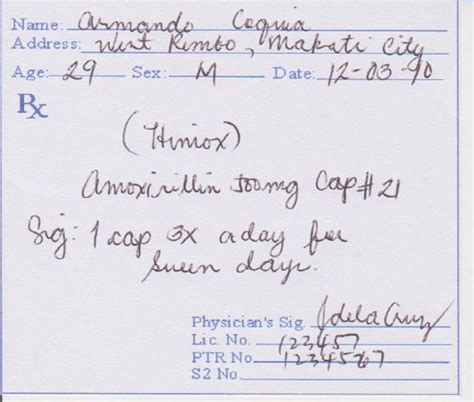 Name: Armando Coquia
Address: West Rembo, Makati City
Age: 29 Sex: M Date: 12-03-90
Rx
(Himox)
Amoxicillin 500mg Cap # 21
Sig: 1 cap 3x a day for
seven days.
Physician's Sig. Jdela Cruz
Lic. No. 123457
PTR No. 1234567
S2 No.